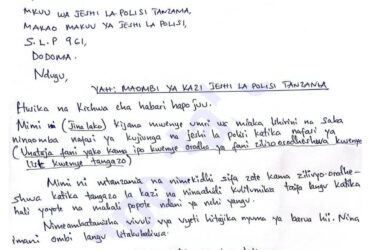 MKUU WA JESHI LA POLISI TANZANIA,
MAKAO MAKUU YA JESHI LA POLISI,
S.L.P 961,
DODOMA.
Ndugu,
YAH: MAOMBI YA KAZI JESHI LA POLISI TANZANIA
Husika na kichwa cha habari hapo juu.
Mimi ni (Jina lako) kijana mwenye umri wa miaka ishirini na saba
ninaomba nafasi ya kujiunga na jeshi la polisi katika nafasi ya
(Unataja fani yako kama ipo kwenye orodha ya fani zilizoorodheshwa kwenye
tangazo)
Mimi ni mtanzania na nimekidhi sifa zote kama zilivyo-orodhe-
shwa katika tangazo la kazi na ninaahidi kulitumikia taifa langu katika
hali yoyote na mahali popote ndani ya nchi yangu.
Nimeambatanisha vivuli vya vyeti hitajika nyuma ya barua hii. Nina
imani ombi langu litakubaliwa.